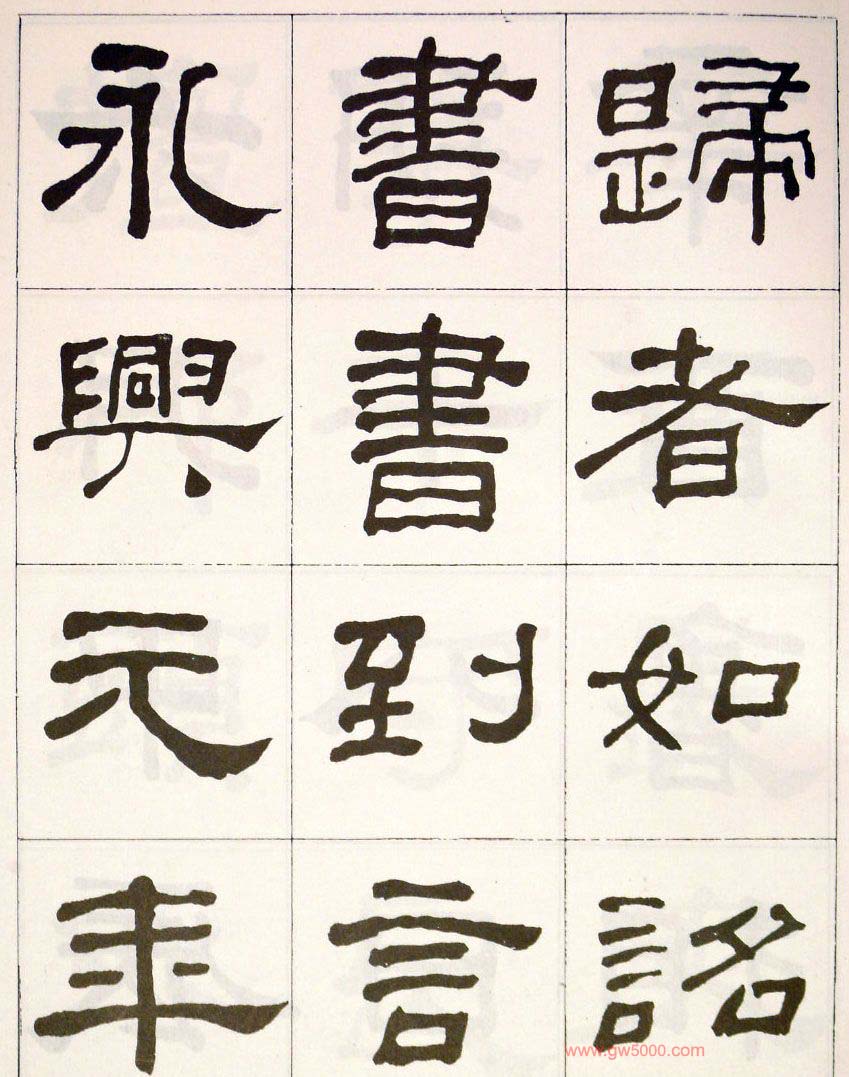 歸者如詔
書書到言
永興元年
www.gw5000.com